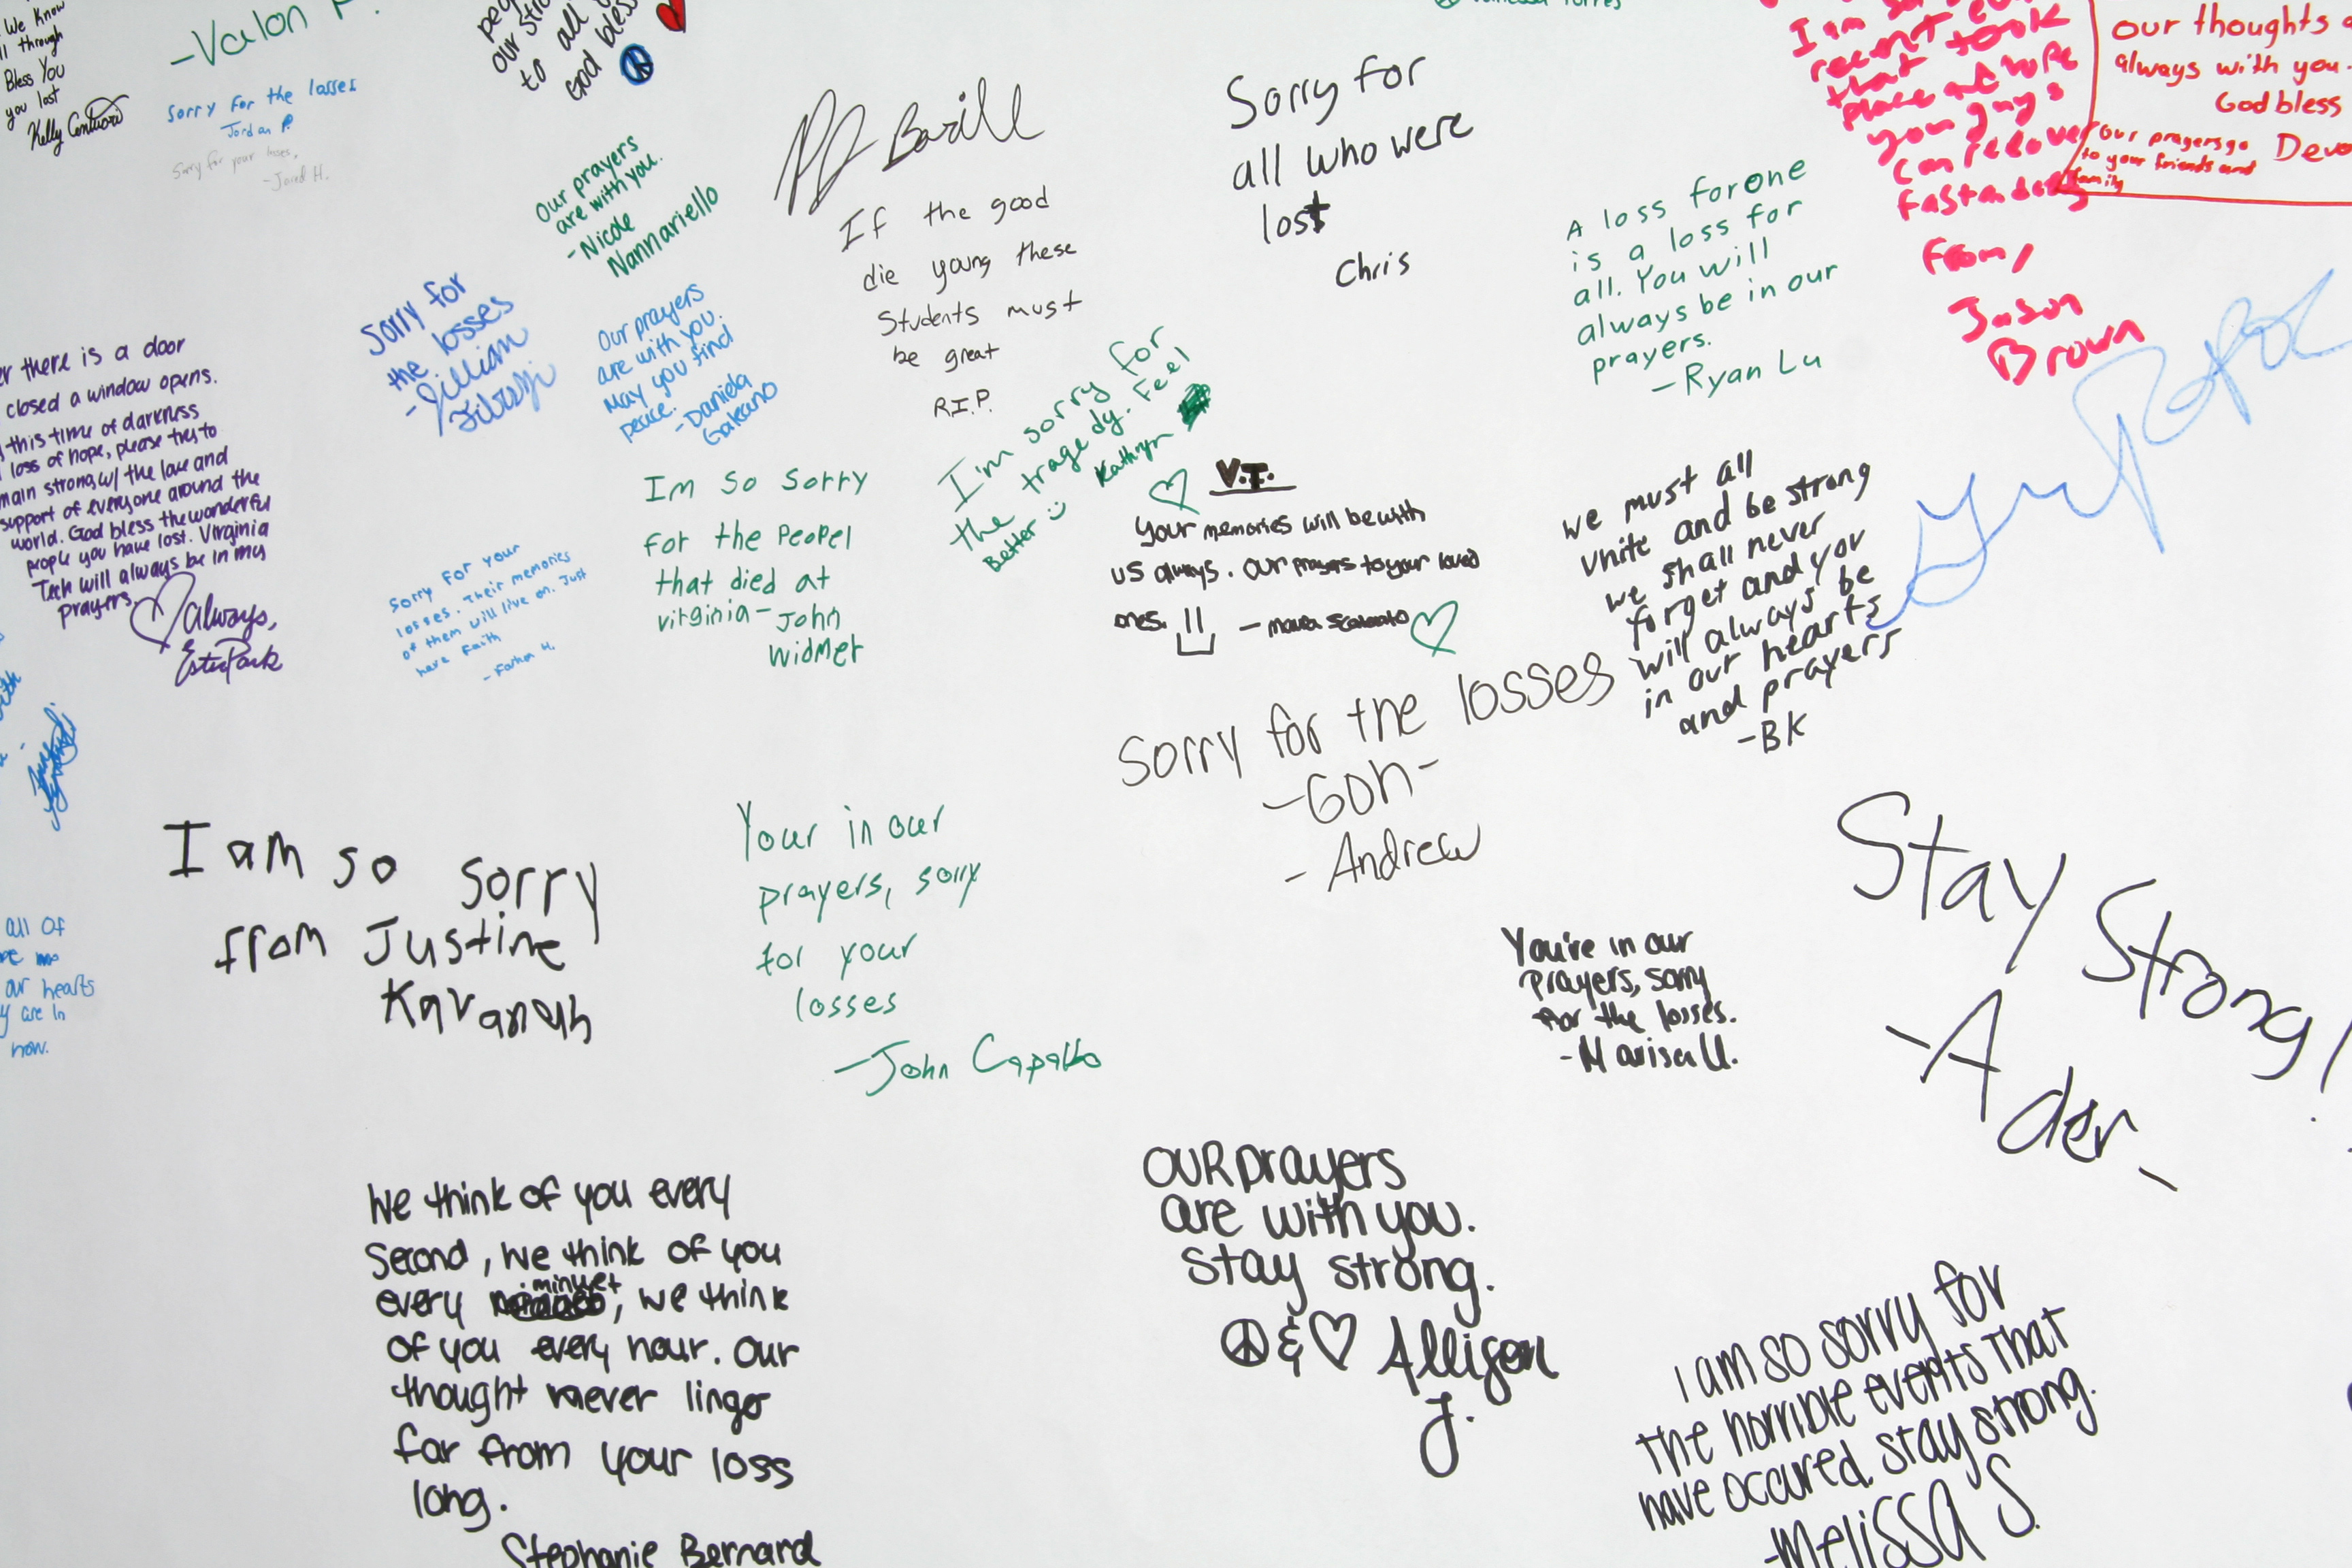 We Know
through
Bless You
you lost
Kelly
-Valon
Sorry for the losses
Jordan P.
Sorry for your losses,
-Jared H.
our
to all
God bless
Our prayers
are with you.
-Nicole
Nannariello
Barill
If the good
die young these
Students must
be great
R.I.P.
Sorry for
all who were
lost
Chris
A loss for one
is a loss for
all. You will
always be in our
prayers.
-Ryan Lu
I am
recent
that took
place at hope
you guys
can recover
fast
From,
Jason
Brown
our thoughts
always with you.
God bless
our prayers go
to your friends and
family
Sorry for
the losses
-Jillian
Our prayers
are with you.
May you find
peace.
-Daniela
Galeano
there is a door
closed a window opens.
this time of darkness
loss of hope, please try to
main strong w/ the love and
support of everyone around the
world. God bless the wonderful
people you have lost. Virginia
Tech will always be in my
prayers.
Always,
Ester Park
Sorry for your
losses. Their memories
of them will live on. Just
have faith
-Farha H.
Im So Sorry
for the Peopel
that died at
virginia - John
Widmer
I'm sorry for
the tragedy. Feel
Better :) Kathryn
V.T.
Your memories will be with
us always. Our prayers to your loved
ones.
we must all
unite and be strong
we shall never
forget and you
will always be
in our hearts
and prayers
-BK
Sorry for the losses
-GOH-
- Andrew
all of
our hearts
are in
now.
I am so sorry
from Justine
Kavanagh
Your in our
prayers, sorry
for your
losses
-John Capalbo
You're in our
prayers, sorry
for the losses.
-Marisa U.
Stay Strong!
-Ader-
We think of you every
Second, we think of you
every minuet, we think
of you every hour. Our
thought never linger
far from your loss
long.
Stephanie Bernard
OUR prayers
are with you.
Stay strong.
☮ & ♡ Allison
J.
I am so sorry for
the horrible events that
have occured. Stay strong.
-Melissa S.